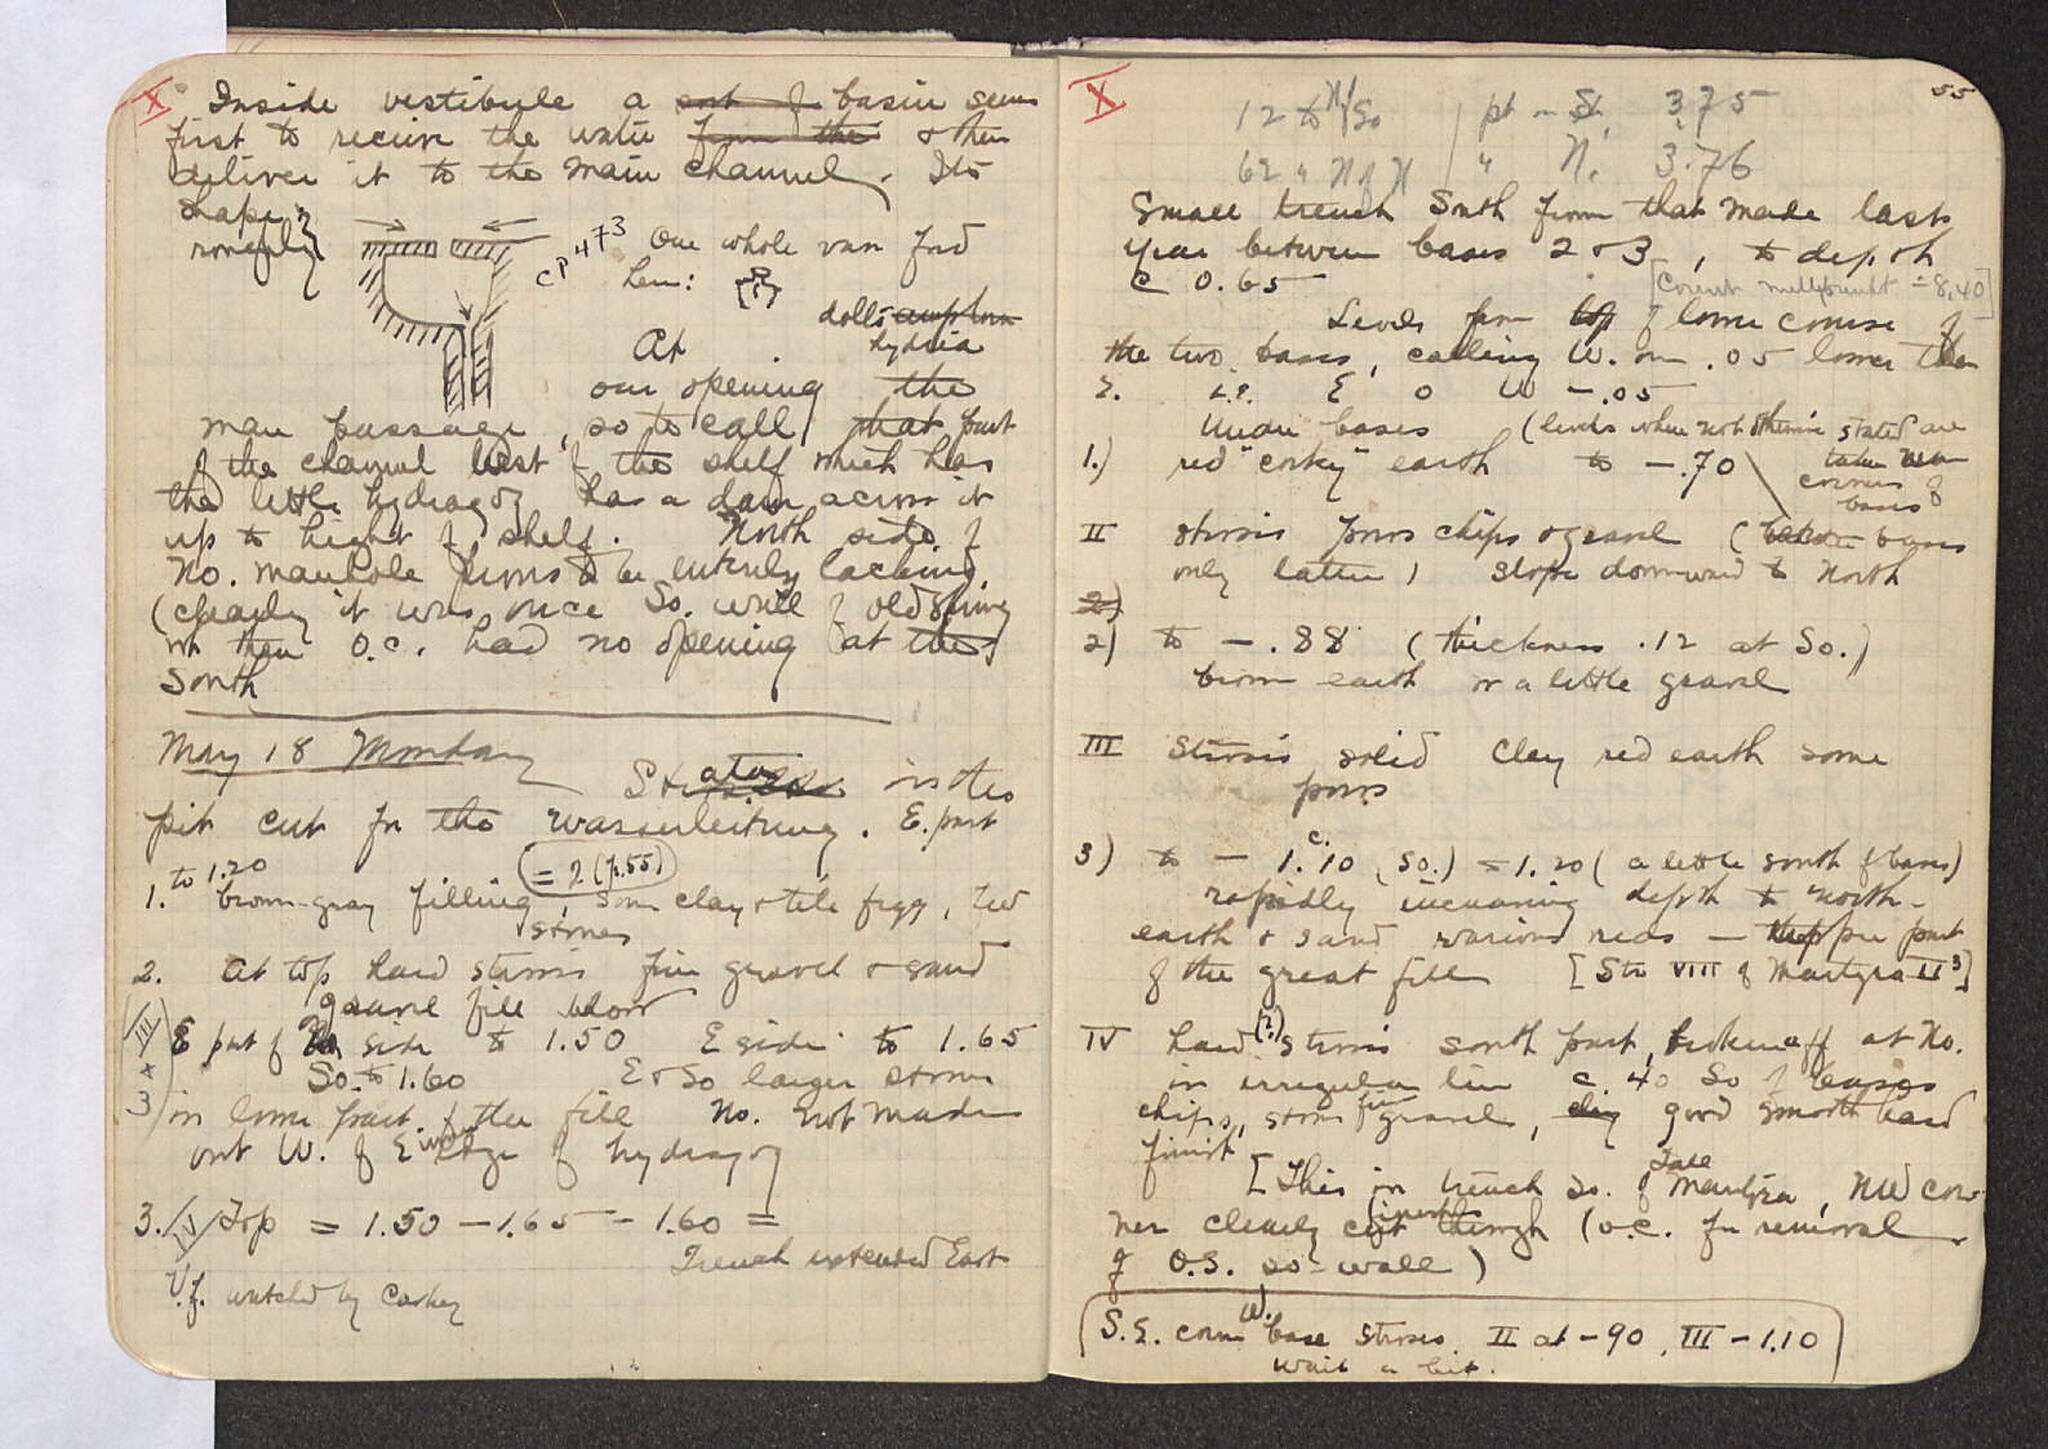 X
Inside vestibule a sort of basin seems
first to receive the water from the & then
deliver it to the main channel. Its
shape
roughly
CP 473 One whole vase found
here:
doll's amphora
hydria
At
our opening the
main passage, so to call that part
of the channel West of the shelf which has
the little hydragog has a dam across it
up to height of shelf. North side of
No. manhole proves to be entirely lacking.
(clearly it was once So. wall of old Spring
wh then o.c. had no opening at the
South
May 18 Monday
Strata in the
pit cut for the wasserleitung. E. part
to 1.20
= 2 (p.55)
1. brown-gray filling, some clay & tile fragg, few
stones
2. At top hard stosis fine gravel & sand
gravel fill below
III & 3
E part of No side to 1.50 E side to 1.65
So. to 1.60 E & So larger stones
in lower part of the fill No. not made
out W. of E edge of hydragog
3. IV Top = 1.50 - 1.65 - 1.60 =
Trench extended East
V.f. watched by Caskey
55
X
12 to N/So pt on St. 3.75
62 " N of N " N. 3.76
Small trench South from that made last
year between bases 2 & 3, to depth
c 0.65
Levels from top of lower course of
the two bases, calling W. one .05 lower than
E. i.e. E 0 W -.05
Under bases (levels when not otherwise stated are
taken near
corners of
bases
1.) red "corky" earth to -.70
II stosis poros chips & gravel (below bases
only latter) slope downward to North
2)
2) to -.88 (thickness .12 at So.)
brown earth w a little gravel
III Stosis solid clay red earth some
poros
3) to - c. 1.10 (So.) = 1.20 (a little south of bases)
rapidly increasing depth to north -
earth & sand various reds - the upper part
of the great fill [Str VIII of Martyra II 3]
IV hard (?) stosis south part, broken off at No.
in irregular line c. 40 So of bases
chips, stones fine gravel, clay good smooth hard
finish
[This in trench So. of Tall Martyra, NW cor-
ner clearly cut through (o.c. for removal
of O.S. so-wall)
S.E. corner W. base stosis II at -90, III -1.10
wait a bit.